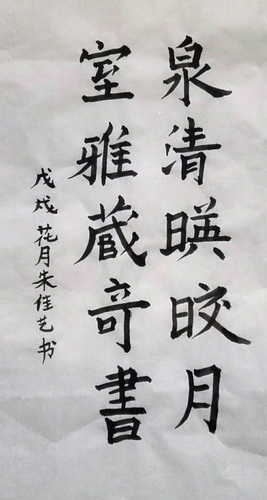 泉清暎皎月
室雅蔵奇書
戊戌花月朱佳艺书